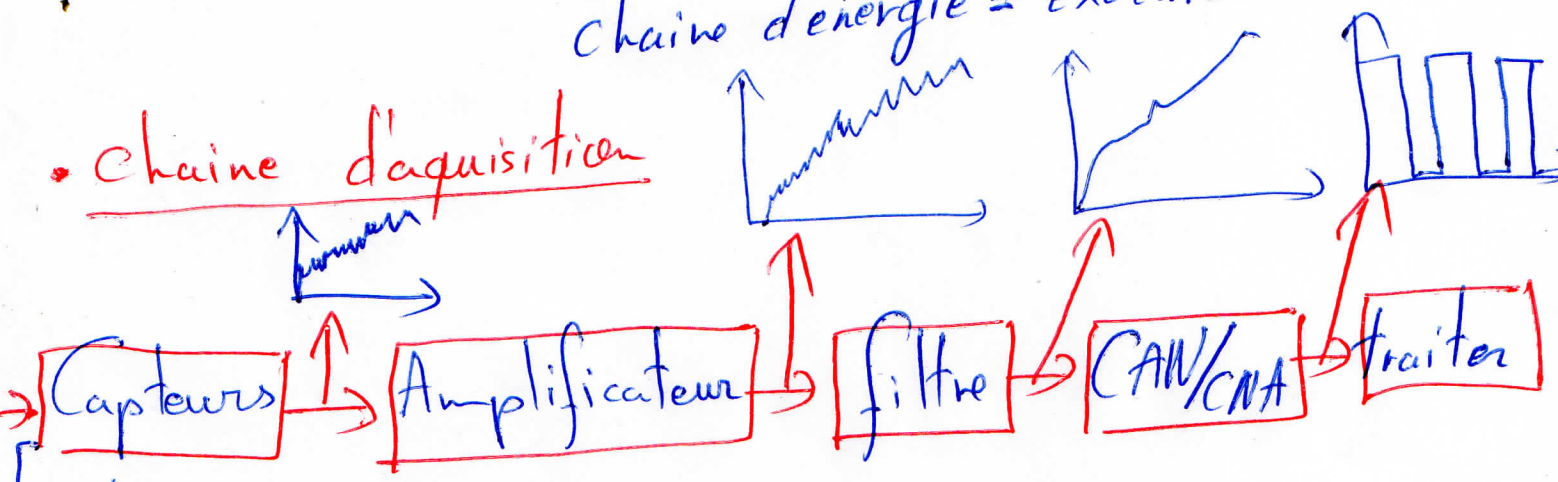 chaine d'énergie =
• chaine d'aquisition
Capteurs
Amplificateur
filtre
CAN/CNA
traiter